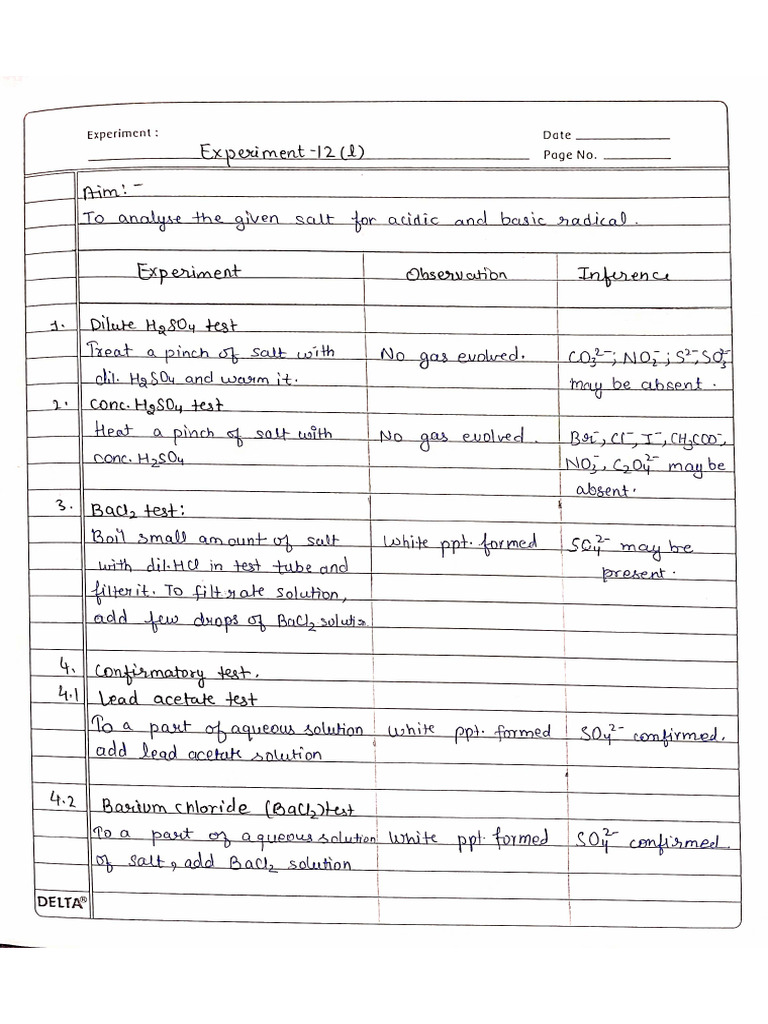 Experiment :
Date
Experiment-12(l)
Page No.
Aim:-
To analyse the given salt for acidic and basic radical.
Experiment Observation Inference
1. Dilute H₂SO₄ test
Treat a pinch of salt with No gas evolved. CO₃²⁻; NO₂⁻; S²⁻, SO₃²⁻
dil. H₂SO₄ and warm it. may be absent.
2. Conc. H₂SO₄ test
Heat a pinch of salt with No gas evolved. Br⁻, Cl⁻, I⁻, CH₃COO⁻,
conc. H₂SO₄ NO₃⁻, C₂O₄²⁻ may be
absent.
3. BaCl₂ test:
Boil small amount of salt White ppt. formed SO₄²⁻ may be
with dil. HCl in test tube and present.
filter it. To filtrate solution,
add few drops of BaCl₂ solution
4. Confirmatory test.
4.1 Lead acetate test
To a part of aqueous solution White ppt. formed SO₄²⁻ confirmed.
add lead acetate solution
4.2 Barium chloride (BaCl₂) test
To a part of aqueous solution White ppt. formed SO₄²⁻ confirmed.
of salt, add BaCl₂ solution
DELTA®